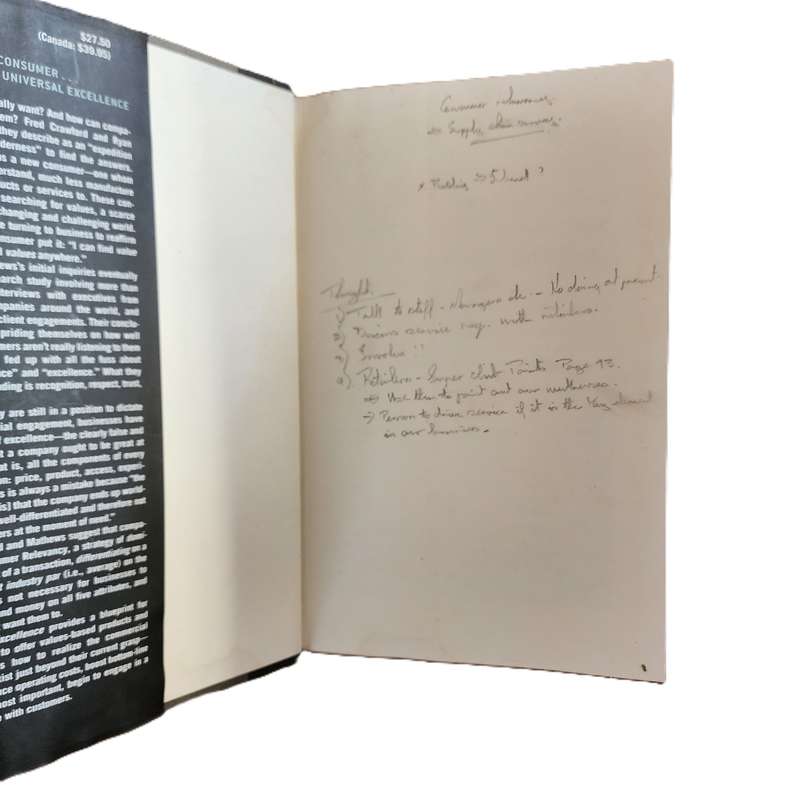 $27.50
(Canada: $39.95)
CONSUMER . . .
UNIVERSAL EXCELLENCE
ally want? And how can compa-
em? Fred Crawford and Ryan
they describe as an "expedition
derness" to find the answers.
s a new consumer—one whom
erstand, much less manufacture
ucts or services to. These con-
searching for values, a scarce
changing and challenging world.
e turning to business to reaffirm
onsumer put it: "I can find value
d values anywhere."
ews's initial inquiries eventually
earch study involving more than
terviews with executives from
mpanies around the world, and
client engagements. Their conclu-
priding themselves on how well
mers aren't really listening to them
fed up with all the fuss about
ice" and "excellence." What they
nding is recognition, respect, trust,
y are still in a position to dictate
ial engagement, businesses have
f excellence—the clearly false and
t a company ought to be great at
at is, all the components of every
on: price, product, access, experi-
s is always a mistake because "the
is] that the company ends up world-
well-differentiated and therefore not
ers at the moment of need."
d and Mathews suggest that compa-
umer Relevancy, a strategy of domi-
of a transaction, differentiating on a
industry par (i.e., average) on the
s not necessary for businesses to
nd money on all five attributes, and
want them to.
xcellence provides a blueprint for
to offer values-based products and
s how to realize the commercial
xist just beyond their current grasp—
uce operating costs, boost bottom-line
most important, begin to engage in a
with customers.
Consumer relevancy
⇒ Supply chain
Thoughts:
1) Talk to staff - Managers etc. - No doing at present.
2) Discuss service with retailers.
3) Involve !!
4) Retailers - Super Client Points Page 93.
⇒ Use them to point out our weaknesses.
⇒ Person to drive service if it is the key element
in our business.